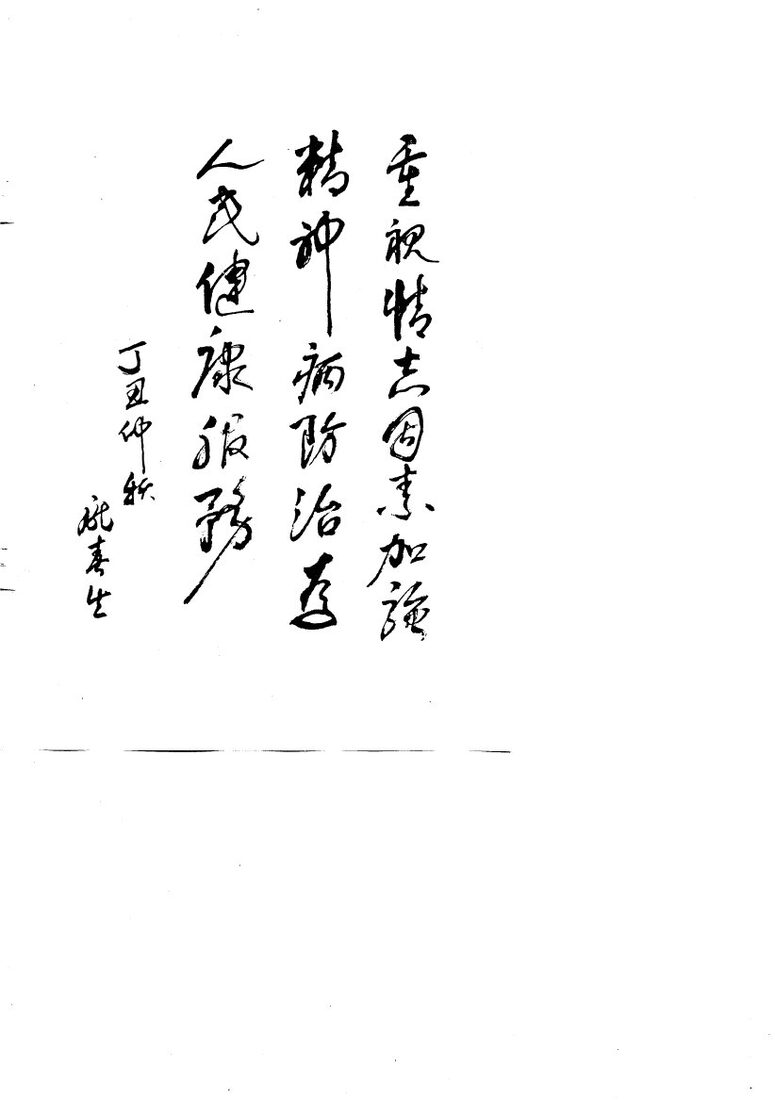 重視情志因素加強
精神病防治為
人民健康服務
丁丑仲秋
春生